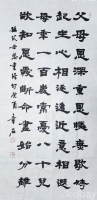 父母恩深重恩憐無歇時
起坐心相逐遠近意相隨
母年一百歲常憂八十兒
欲知恩愛斷命盡始分離